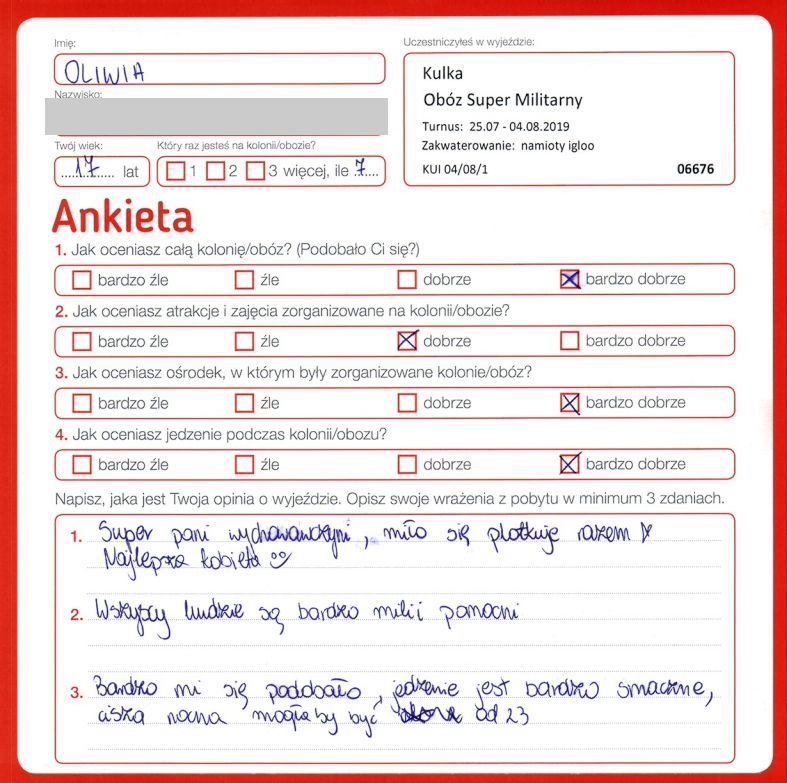 Imię:
OLIWIA
Nazwisko:
Twój wiek:
17 lat
Który raz jesteś na kolonii/obozie?
1 2 3 więcej, ile 7
Uczestniczyłeś w wyjeździe:
Kulka
Obóz Super Militarny
Turnus: 25.07 - 04.08.2019
Zakwaterowanie: namioty igloo
KUI 04/08/1 06676
Ankieta
1. Jak oceniasz całą kolonię/obóz? (Podobało Ci się?)
bardzo źle źle dobrze bardzo dobrze
2. Jak oceniasz atrakcje i zajęcia zorganizowane na kolonii/obozie?
bardzo źle źle dobrze bardzo dobrze
3. Jak oceniasz ośrodek, w którym były zorganizowane kolonie/obóz?
bardzo źle źle dobrze bardzo dobrze
4. Jak oceniasz jedzenie podczas kolonii/obozu?
bardzo źle źle dobrze bardzo dobrze
Napisz, jaka jest Twoja opinia o wyjeździe. Opisz swoje wrażenia z pobytu w minimum 3 zdaniach.
1. Super pani wychowawczyni, miło się plotkuje razem
Najlepsza kobieta
2. Wszyscy ludzie są bardzo mili i pomocni
3. Bardzo mi się podobało, jedzenie jest bardzo smaczne,
cisza nocna mogłaby być od 23